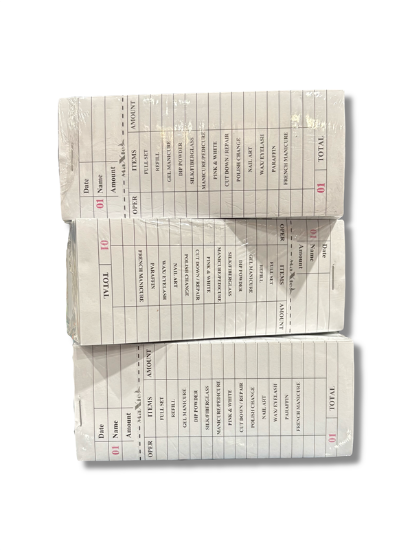 Date
01 Name
Amount
OPER ITEMS AMOUNT
FULL SET
REFILL
GEL MANICURE
DIP POWDER
SILK/FIBERGLASS
MANICURE/PEDICURE
PINK & WHITE
CUT DOWN / REPAIR
POLISH CHANGE
NAIL ART
WAX/ EYELASH
PARAFFIN
FRENCH MANICURE
01 TOTAL
Date
01 Name
Amount
OPER ITEMS AMOUNT
FULL SET
REFILL
GEL MANICURE
DIP POWDER
SILK/FIBERGLASS
MANICURE/PEDICURE
PINK & WHITE
CUT DOWN / REPAIR
POLISH CHANGE
NAIL ART
WAX/ EYELASH
PARAFFIN
FRENCH MANICURE
01 TOTAL
Date
01 Name
Amount
OPER ITEMS AMOUNT
FULL SET
REFILL
GEL MANICURE
DIP POWDER
SILK/FIBERGLASS
MANICURE/PEDICURE
PINK & WHITE
CUT DOWN / REPAIR
POLISH CHANGE
NAIL ART
WAX/ EYELASH
PARAFFIN
FRENCH MANICURE
01 TOTAL